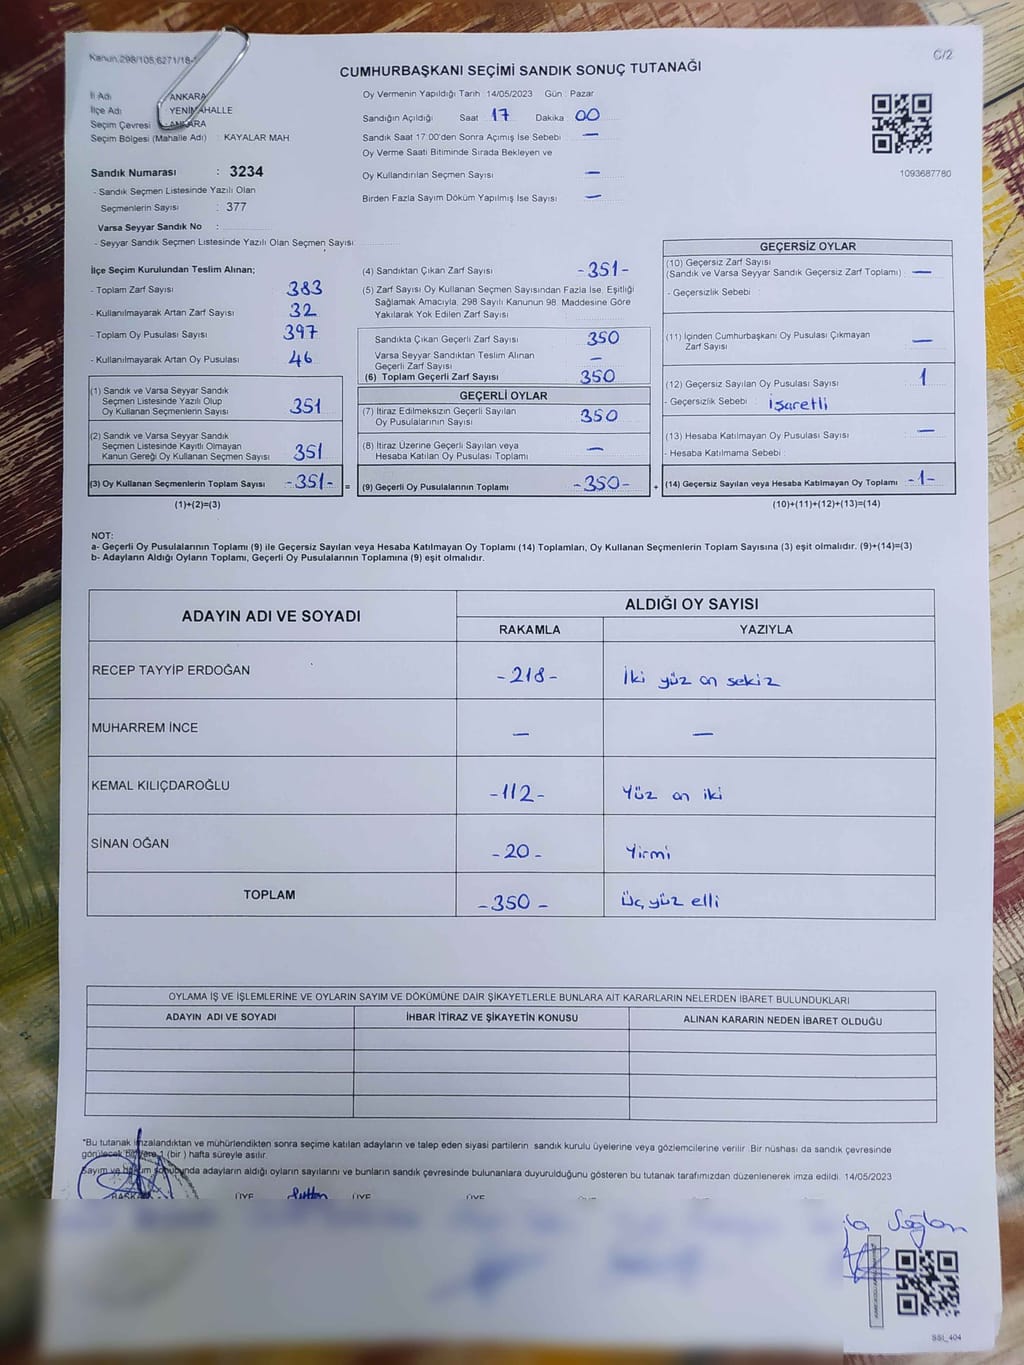 Kanun:298/105;6271/18-
C/2
CUMHURBAŞKANI SEÇİMİ SANDIK SONUÇ TUTANAĞI
İl Adı : ANKARA
İlçe Adı : YENİMAHALLE
Seçim Çevresi : ANKARA
Seçim Bölgesi (Mahalle Adı) : KAYALAR MAH.
Oy Vermenin Yapıldığı Tarih : 14/05/2023 Gün : Pazar
Sandığın Açıldığı Saat 17 Dakika 00
Sandık Saat 17:00'den Sonra Açımış İse Sebebi —
Oy Verme Saati Bitiminde Sırada Bekleyen ve
Oy Kullandırılan Seçmen Sayısı —
Birden Fazla Sayım Döküm Yapılmış İse Sayısı —
1093687780
Sandık Numarası : 3234
- Sandık Seçmen Listesinde Yazılı Olan
Seçmenlerin Sayısı : 377
Varsa Seyyar Sandık No :
- Seyyar Sandık Seçmen Listesinde Yazılı Olan Seçmen Sayısı
İlçe Seçim Kurulundan Teslim Alınan;
- Toplam Zarf Sayısı 383
- Kullanılmayarak Artan Zarf Sayısı 32
- Toplam Oy Pusulası Sayısı 397
- Kullanılmayarak Artan Oy Pusulası 46
(1) Sandık ve Varsa Seyyar Sandık
Seçmen Listesinde Yazılı Olup
Oy Kullanan Seçmenlerin Sayısı 351
(2) Sandık ve Varsa Seyyar Sandık
Seçmen Listesinde Kayıtlı Olmayan
Kanun Gereği Oy Kullanan Seçmen Sayısı 351
(3) Oy Kullanan Seçmenlerin Toplam Sayısı -351- =
(1)+(2)=(3)
(4) Sandıktan Çıkan Zarf Sayısı -351-
(5) Zarf Sayısı Oy Kullanan Seçmen Sayısından Fazla İse, Eşitliği
Sağlamak Amacıyla, 298 Sayılı Kanunun 98. Maddesine Göre
Yakılarak Yok Edilen Zarf Sayısı
Sandıkta Çıkan Geçerli Zarf Sayısı 350
Varsa Seyyar Sandıktan Teslim Alınan
Geçerli Zarf Sayısı —
(6) Toplam Geçerli Zarf Sayısı 350
GEÇERLİ OYLAR
(7) İtiraz Edilmeksizin Geçerli Sayılan
Oy Pusulalarının Sayısı 350
(8) İtiraz Üzerine Geçerli Sayılan veya
Hesaba Katılan Oy Pusulası Toplamı —
(9) Geçerli Oy Pusulalarının Toplamı -350- +
GEÇERSİZ OYLAR
(10) Geçersiz Zarf Sayısı
(Sandık ve Varsa Seyyar Sandık Geçersiz Zarf Toplamı) —
- Geçersizlik Sebebi :
(11) İçinden Cumhurbaşkanı Oy Pusulası Çıkmayan
Zarf Sayısı —
(12) Geçersiz Sayılan Oy Pusulası Sayısı 1
- Geçersizlik Sebebi : İşaretli
(13) Hesaba Katılmayan Oy Pusulası Sayısı —
- Hesaba Katılmama Sebebi :
(14) Geçersiz Sayılan veya Hesaba Katılmayan Oy Toplamı -1-
(10)+(11)+(12)+(13)=(14)
NOT:
a- Geçerli Oy Pusulalarının Toplamı (9) ile Geçersiz Sayılan veya Hesaba Katılmayan Oy Toplamı (14) Toplamları, Oy Kullanan Seçmenlerin Toplam Sayısına (3) eşit olmalıdır. (9)+(14)=(3)
b- Adayların Aldığı Oyların Toplamı, Geçerli Oy Pusulalarının Toplamına (9) eşit olmalıdır.
ADAYIN ADI VE SOYADI ALDIĞI OY SAYISI
RAKAMLA YAZIYLA
RECEP TAYYİP ERDOĞAN -218- İki yüz on sekiz
MUHARREM İNCE — —
KEMAL KILIÇDAROĞLU -112- Yüz on iki
SİNAN OĞAN -20- Yirmi
TOPLAM -350- Üç yüz elli
OYLAMA İŞ VE İŞLEMLERİNE VE OYLARIN SAYIM VE DÖKÜMÜNE DAİR ŞİKAYETLERLE BUNLARA AİT KARARLARIN NELERDEN İBARET BULUNDUKLARI
ADAYIN ADI VE SOYADI İHBAR İTİRAZ VE ŞİKAYETİN KONUSU ALINAN KARARIN NEDEN İBARET OLDUĞU
*Bu tutanak imzalandıktan ve mühürlendikten sonra seçime katılan adayların ve talep eden siyasi partilerin sandık kurulu üyelerine veya gözlemcilerine verilir. Bir nüshası da sandık çevresinde
görülecek bir yere 1 (bir) hafta süreyle asılır.
Sayım ve döküm sonucunda adayların aldığı oyların sayılarını ve bunların sandık çevresinde bulunanlara duyurulduğunu gösteren bu tutanak tarafımızdan düzenlenerek imza edildi. 14/05/2023
BAŞKAN ÜYE ÜYE ÜYE
SSI_404